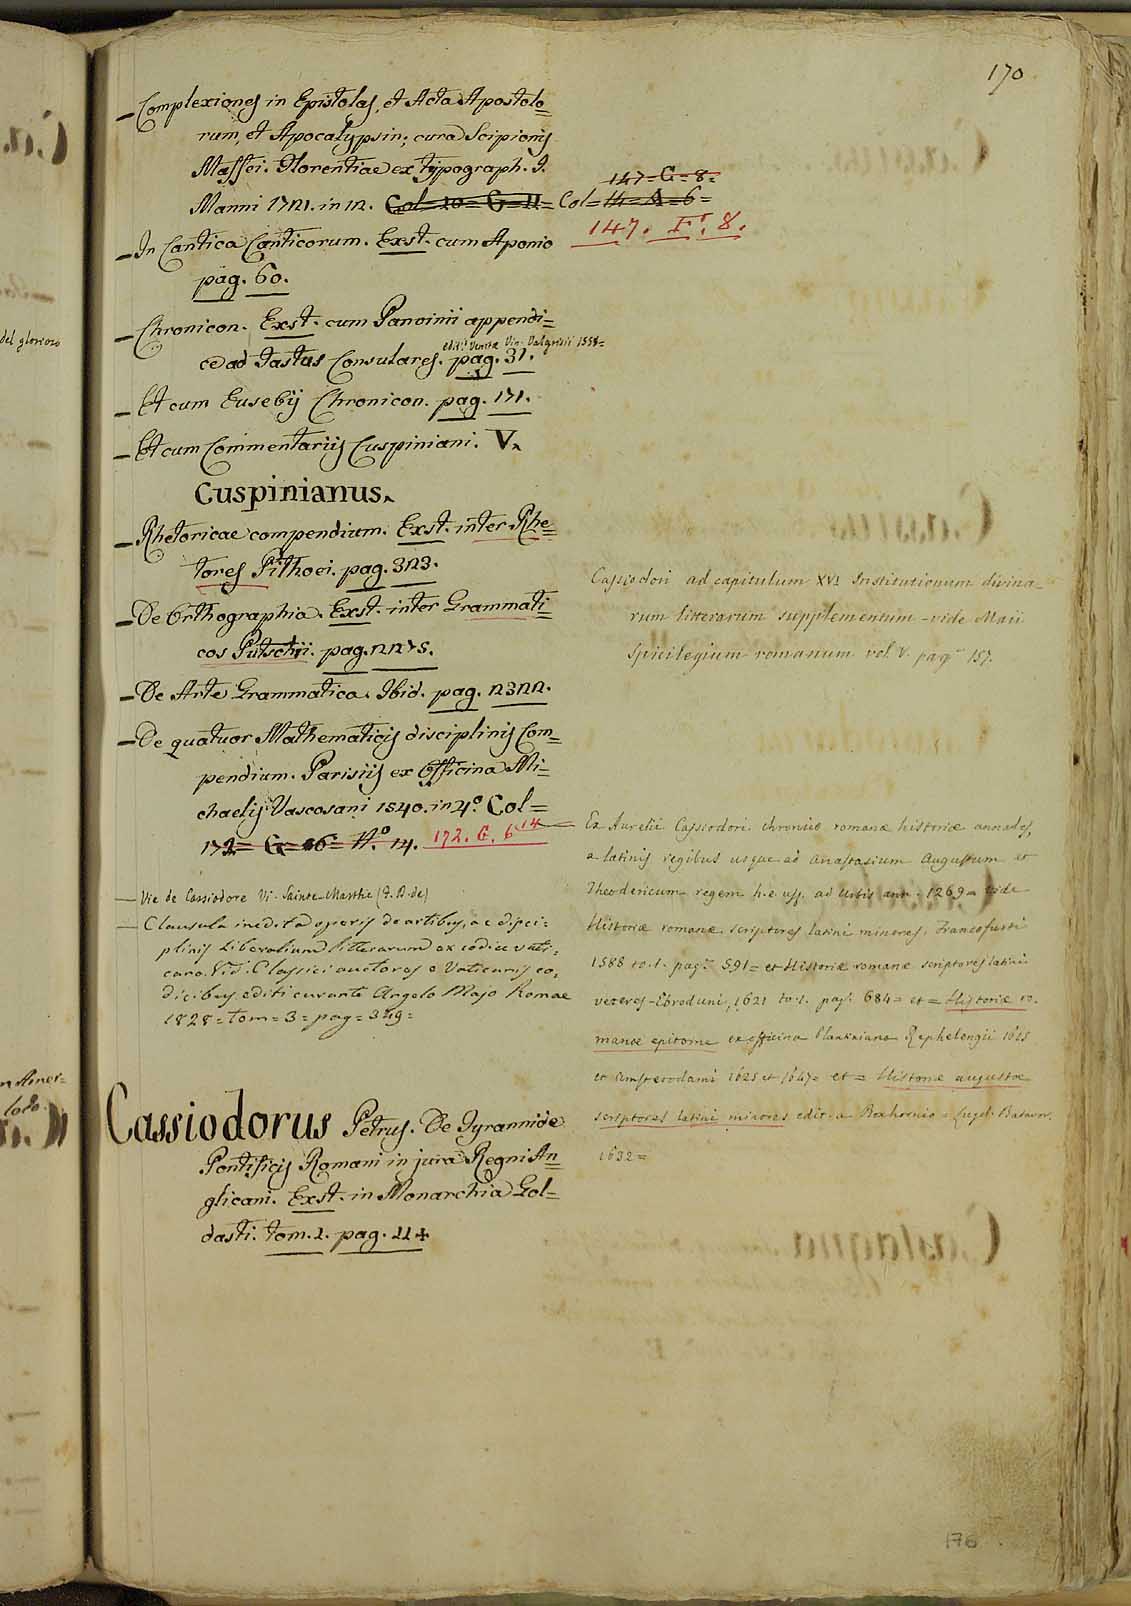 170
– Complexiones in Epistolas, et Acta Apostolo=
rum, et Apocalypsin; cura Scipionis
Maffei. Florentiae ex typograph. I.
Manni 1721. in 12. Col=10=G=11= Col=14=A=6=
147=G=8=
147. F. 8.
– In Cantica Canticorum. Exst. cum Aponio
pag. 60.
– Chronicon. Exst. cum Panvinii appendi=
ce ad Fastus Consulares. pag. 31.
edit. Venetæ Vin. Valgrisii 1558=
– Et cum Eusebij Chronicon. pag. 171.
– Et cum Commentarijs Cuspiniani. V.
Cuspinianus.
– Rhetoricae compendium. Exst. inter Rhe=
tores Pithoei. pag. 323.
– De Orthographia. Exst. inter Grammati=
cos Putschii. pag. 2275.
– De Arte Grammatica. Ibid. pag. 2322.
– De quatuor Mathematicis disciplinis Com=
pendium. Parisiis ex Officina Mi=
chaelis Vascosani 1540. in 4º. Col=
172= G= 6= Nº. 14. 172. G. 6 14
– Vie de Cassiodore Vi. Sainte Marthe (F. D. de)
– Clausula inedita operis de artibus, ac disci=
plinis Liberalium litterarum ex codice vati=
cano. Vid. Classici auctores e Vaticanis co=
dicibus editi curante Angelo Majo Romae
1828= tom= 3= pag= 349=
Cassiodorus Petrus. De Tyrannide
Pontificis Romani in jura Regni An=
glicani. Exst. in Monarchia Gol=
dasti. tom. 1. pag. 11+
Cassiodori ad capitulum XVI Institutionum divina=
rum litterarum supplementum - vide Maii
Spicilegium romanum vol. V. pag. 157.
Ex Aurelii Cassiodori chronico romanæ historiæ annales,
a latinis regibus usque ad Anastasium Augustum et
Theodericum regem h. e. usq. ad Urbis ann. 1269= vide
Historiæ romanæ scriptores latini minores. Francofurti
1588 to. 1. pag. 591= et Historiæ romanæ scriptores latini
veteres - Ebroduni, 1621 to. 1. pag. 684= et = Historiæ ro=
manæ epitome ex officina Plantiniana Raphelengii 1615
et Amsterodami 1625 et 1647= et = Historiæ augustæ
scriptores latini minores edit. a Boxhornio = Lugd. Batavor.
1632=
176
del glorioso